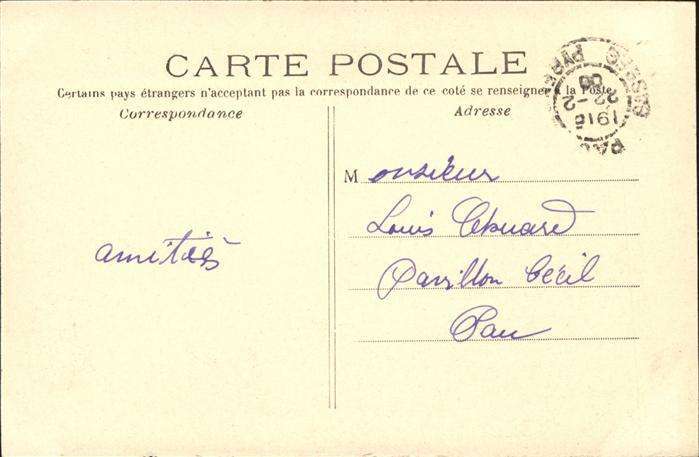 CARTE POSTALE
Certains pays étrangers n'acceptant pas la correspondance de ce coté se renseigner à la Poste
Correspondance
Adresse
amitiés
Monsieur
Louis
Pavillon Cécil
Pau
PAU
1915
22-2